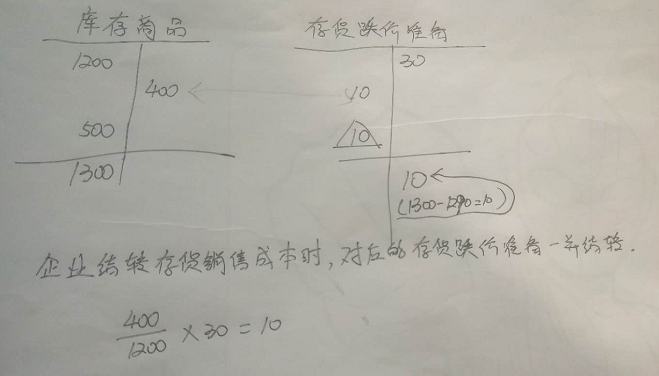 库存商品 存货跌价准备
1200 30
400 10
500 10
1300 10
(1300-1290=10)
企业结转存货销售成本时,对应的存货跌价准备一并结转.
400/1200 × 30 = 10